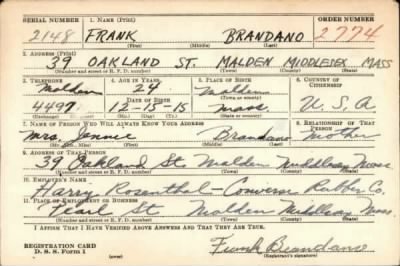 SERIAL NUMBER 1. NAME (Print) ORDER NUMBER
2148 FRANK BRANDANO 2774
(First) (Middle) (Last)
2. ADDRESS (Print)
39 OAKLAND ST. MALDEN MIDDLESEX MASS
(Number and street or R. F. D. number) (Town) (County) (State)
3. TELEPHONE 4. AGE IN YEARS 5. PLACE OF BIRTH 6. COUNTRY OF CITIZENSHIP
Malden 24 Malden
DATE OF BIRTH (Town or county)
4497 12-15-15 Mass. U.S.A.
7. NAME OF PERSON WHO WILL ALWAYS KNOW YOUR ADDRESS 8. RELATIONSHIP OF THAT PERSON
Mrs. Brandano Mother
(Mr., Mrs., Miss) (First) (Middle) (Last)
9. ADDRESS OF THAT PERSON
39 Oakland St Malden Middlesex Mass
(Number and street or R. F. D. number) (Town) (County) (State)
10. EMPLOYER'S NAME
Harry Rosenthal - Converse Rubber Co.
11. PLACE OF EMPLOYMENT OR BUSINESS
Pearl St Malden Middlesex Mass.
(Number and street or R. F. D. number) (Town) (County) (State)
I AFFIRM THAT I HAVE VERIFIED ABOVE ANSWERS AND THAT THEY ARE TRUE.
REGISTRATION CARD
D. S. S. Form 1 (over) Frank Brandano
(Registrant's signature)